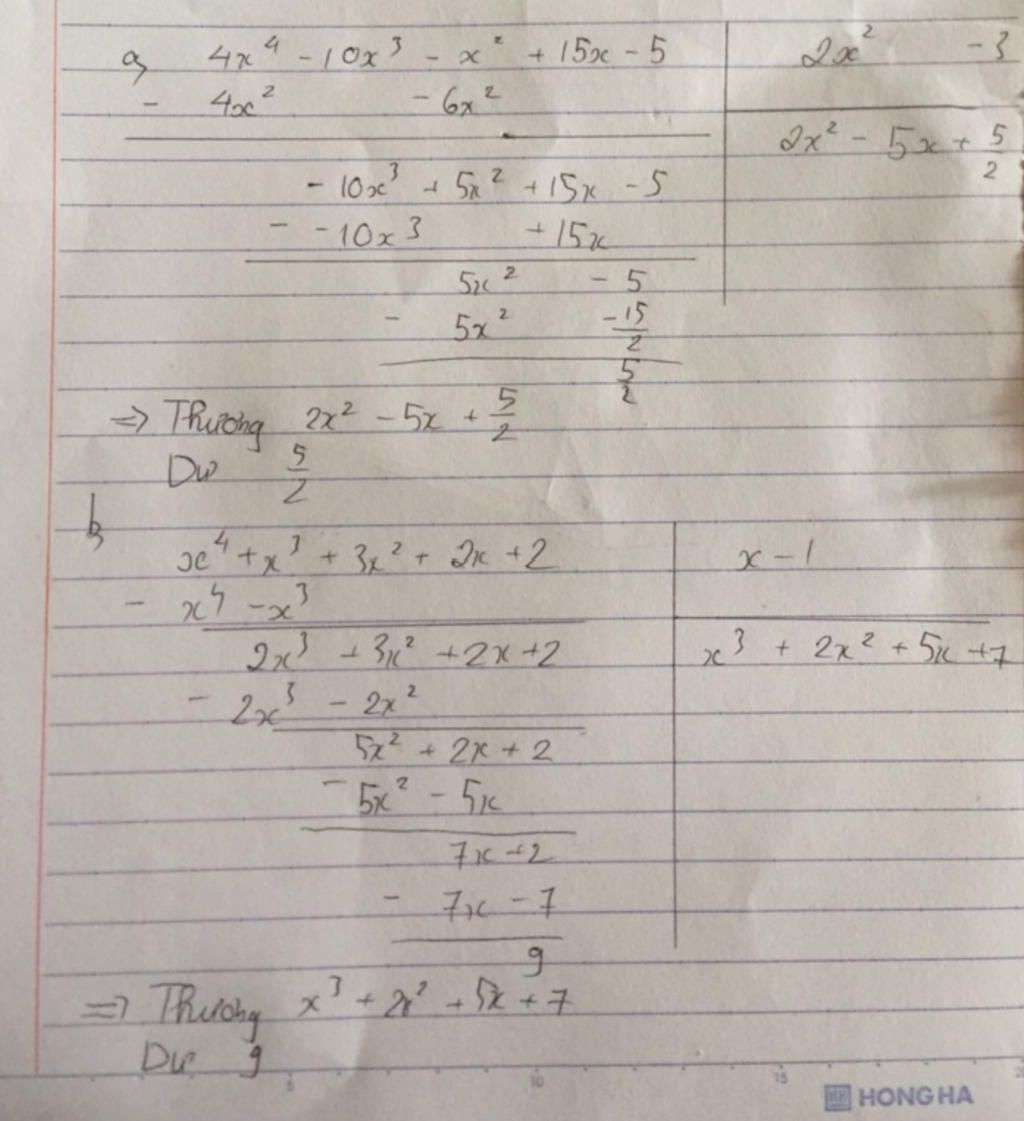 a, 4x⁴ - 10x³ - x² + 15x - 5 | 2x² - 3
- 4x² - 6x²
2x² - 5x + 5/2
- 10x³ + 5x² + 15x - 5
- - 10x³ + 15x
5x² - 5
- 5x² - 15/2
5/2
=> Thương 2x² - 5x + 5/2
Dư 5/2
b,
x⁴ + x³ + 3x² + 2x + 2 | x - 1
- x⁴ - x³
2x³ + 3x² + 2x + 2 | x³ + 2x² + 5x + 7
- 2x³ - 2x²
5x² + 2x + 2
- 5x² - 5x
7x + 2
- 7x - 7
9
=> Thương x³ + 2x² + 5x + 7
Dư 9
5 10 15 20
HONG HA